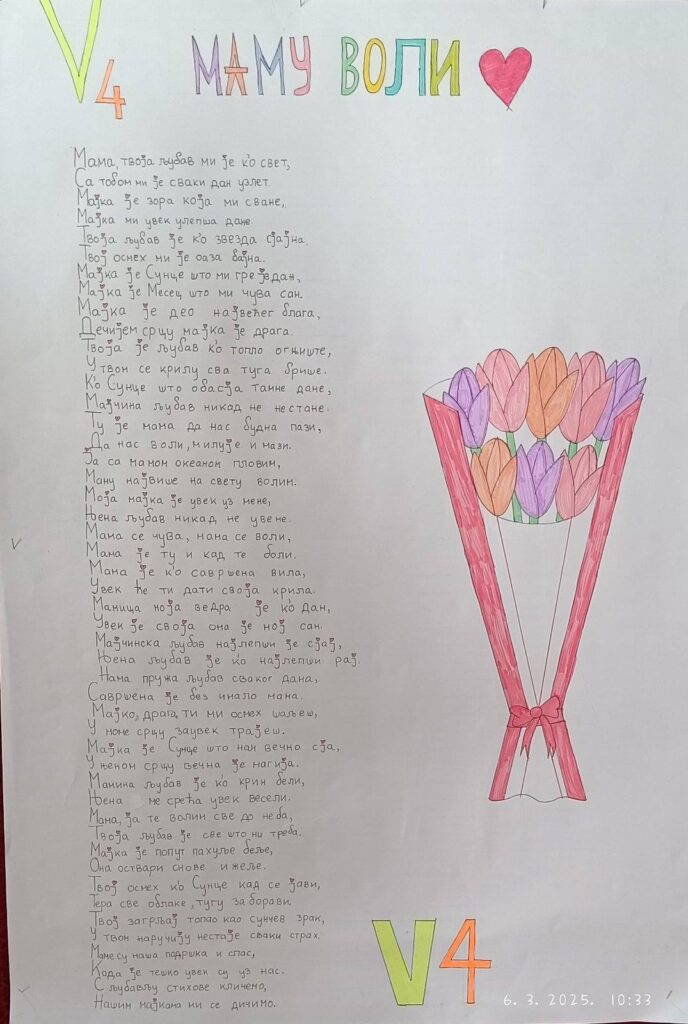 V4
МАМУ ВОЛИ
Мама, твоја љубав ми је к'о свет,
Са тобом ми је сваки дан узлет.
Мајка је зора која ми сване,
Мајка ми увек улепша дане.
Твоја љубав је к'о звезда сјајна.
Твој осмех ми је оаза бајна.
Мајка је Сунце што ми греје дан,
Мајка је Месец што ми чува сан.
Мајка је део највећег блага,
Дечијем срцу мајка је драга.
Твоја је љубав к'о топло огњиште,
У твом се крилу сва туга брише.
К'о Сунце што обасја тамне дане,
Мајчина љубав никад не нестане.
Ту је мама да нас будна пази,
Да нас воли, милује и мази.
Ја са мамом океаном пловим,
Маму највише на свету волим.
Моја мајка је увек уз мене,
Њена љубав никад не увене.
Мама се чува, мама се воли,
Мама је ту и кад те боли.
Мама је к'о савршена вила,
Увек ће ти дати своја крила.
Мамица моја ведра је к'о дан,
Увек је своја она је мој сан.
Мајчинска љубав најлепши је сјај,
Њена љубав је к'о најлепши рај.
Нама пружа љубав сваког дана,
Савршена је без имало мана.
Мајко, драга, ти ми осмех шаљеш,
У моме срцу заувек трајеш.
Мајка је Сунце што нам вечно сја,
У њеном срцу вечна је магија.
Мамина љубав је к'о крин бели,
Њена ме срећа увек весели.
Мама, ја те волим све до неба,
Твоја љубав је све што ми треба.
Мајка је попут пахуље беле,
Она оствари снове и жеље.
Твој осмех к'о Сунце кад се јави,
Тера све облаке, тугу заборави.
Твој загрљај топао као сунчев зрак,
У твом наручију нестаје сваки страх.
Маме су наша подршка и спас,
Када је тешко увек су уз нас.
С љубављу стихове кличемо,
Нашим мајкама ми се дичимо.
V4
6. 3. 2025. 10:33